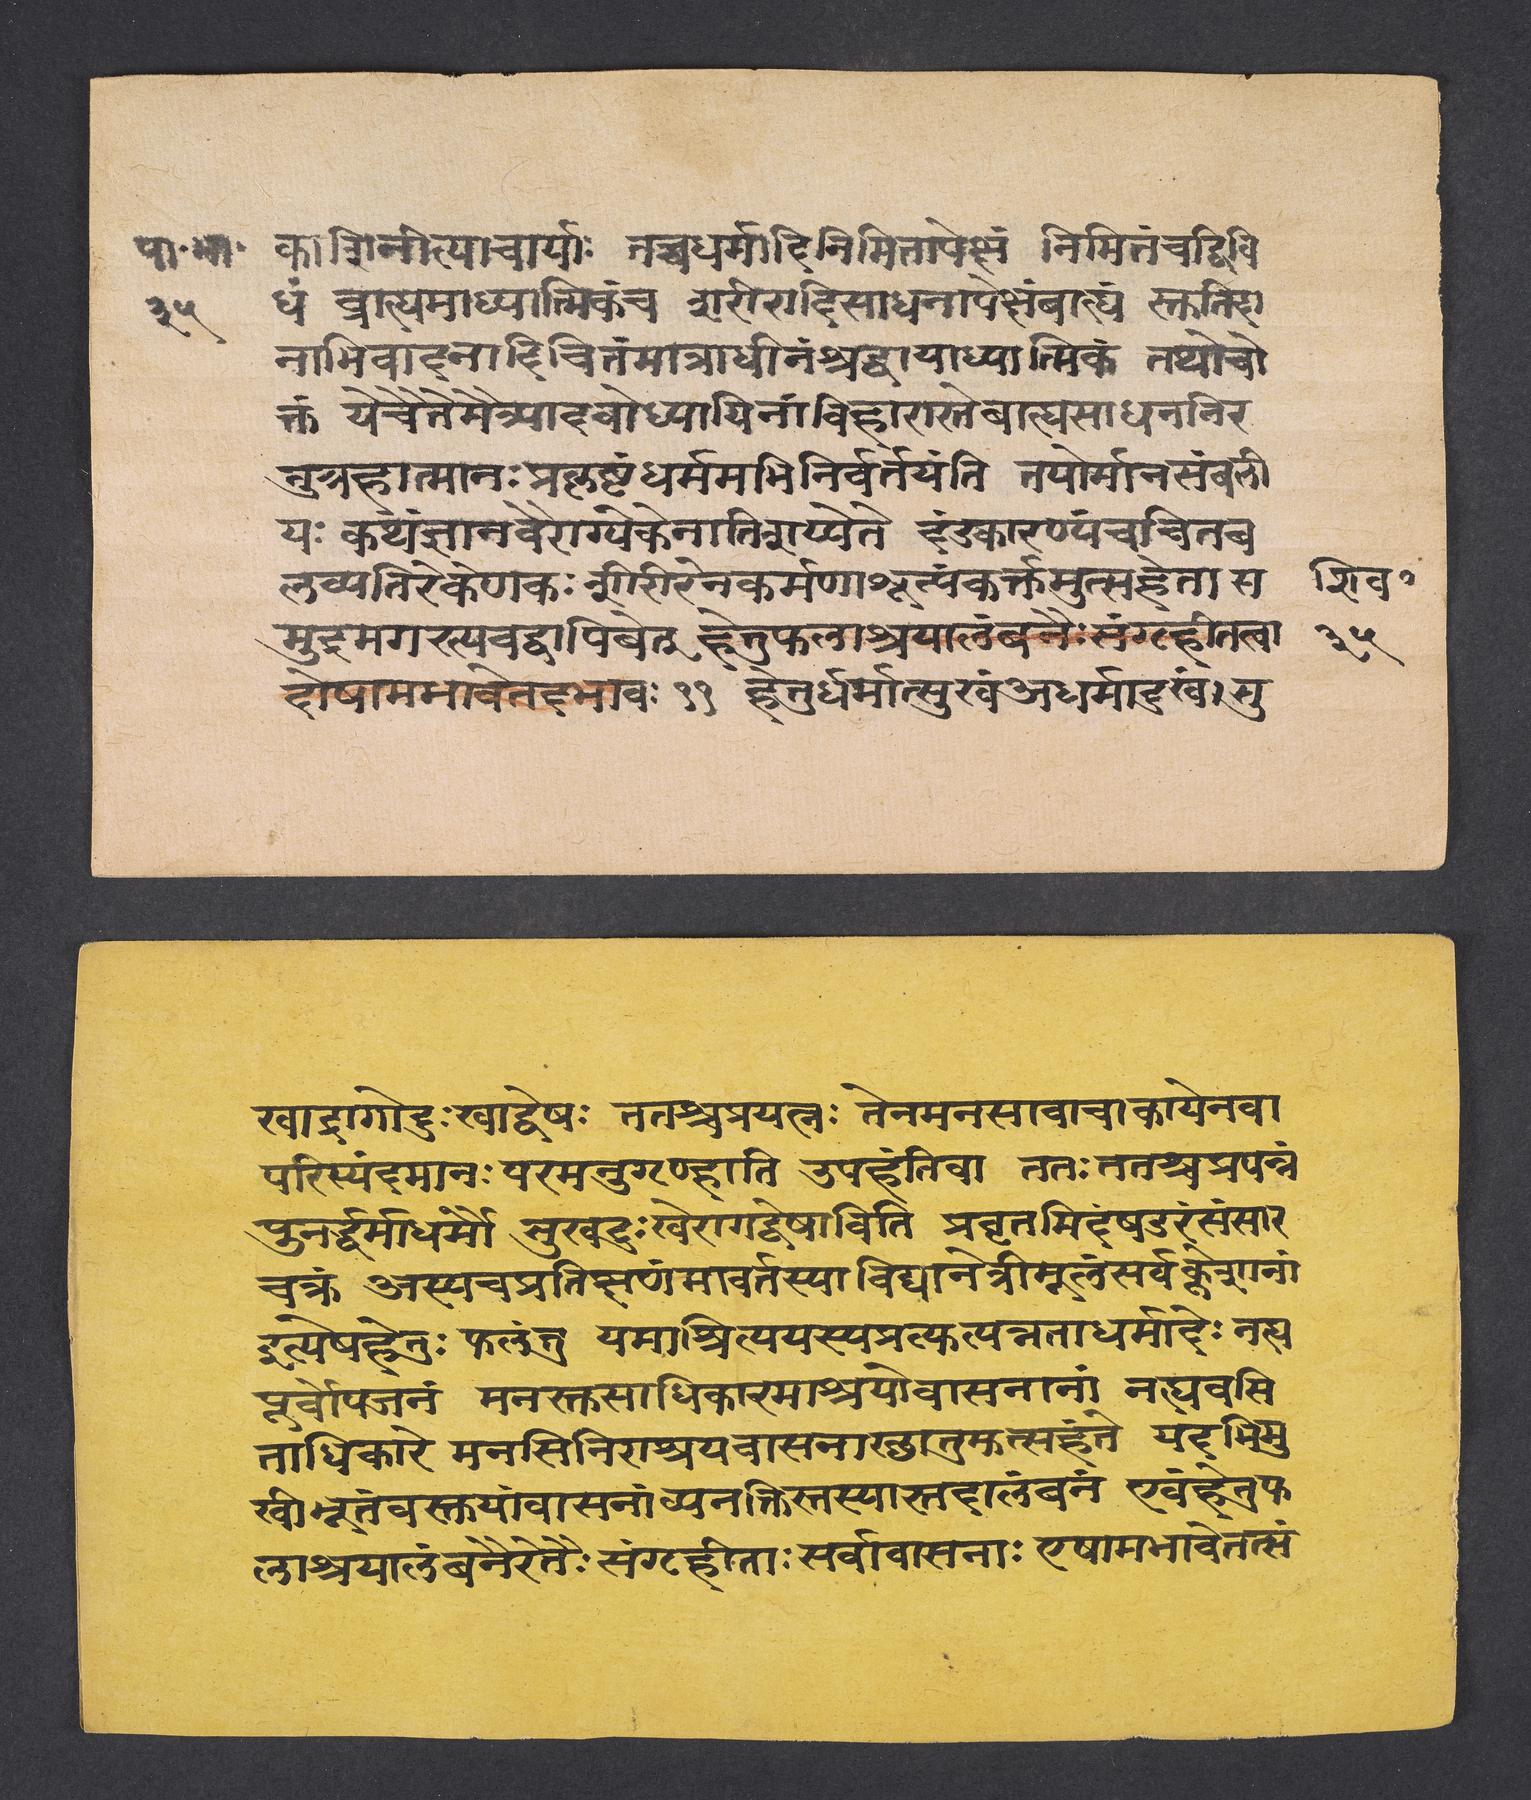 पा॰ भा॰
३५
काशिनीत्याचार्याः तच्चधर्मादिनिमित्तापेक्षं निमित्तंचद्विवि
धं बाह्यमाध्यात्मिकंच शरीरादिसाधनापेक्षंबाह्यं स्तुतिदा
नाभिवादनादि चित्तंमात्राधीनंश्रद्धायाध्यात्मिकं तथाचो
क्तं येचैतेमैत्र्यादयोध्यायिनांविहारास्तेबाह्यसाधननिर
नुग्रहात्मानः प्रकृष्टंधर्ममभिनिर्वर्तयंति तयोर्मानसंबली
यः कथंज्ञानवैराग्येकेनातिशय्येते दंडकारण्यंचचित्तब
लव्यतिरेकेणकः शारीरेनकर्मणाशून्यंकर्त्तुमुत्सहेता स
मुद्रमगस्त्यवद्वापिबेत् हेतुफलाश्रयालंबनैः संगृहीतत्वा
देषामभावेतदभावः ११ हेतुर्धर्मात्सुखंअधर्मादुखं। सु
शिव॰
३५
खाद्रागोदुःखाद्वेषः ततश्चप्रयत्नः तेनमनसावाचाकायेनवा
परिस्यंदमानः परमनुगृण्हाति उपहंतिवा ततः ततश्चप्रपन्नं
पुनर्द्धर्माधर्मौ सुखदुःखेरागद्वेषाविति प्रवृतमिदंषडरंसंसार
चक्रं अस्यचप्रतिक्षणंमावर्तस्याविद्यानेत्रीमूलंसर्वक्लेशानां
इत्येषहेतुः फलंतु यमाश्रित्ययस्यप्रत्युत्पन्नताधर्मादेः नह्य
पूर्वोपजनं मनस्तुसाधिकारमाश्रयोवासनानां नह्यवसि
ताधिकारे मनसिनिराश्रयवासनाख्छातुमुत्सहंते यदभिमु
खीभूतंवस्तुयांवासनांव्यनक्तितस्यास्तदालंबनं एवंहेतुफ
लाश्रयालंबनैरेतैः संगृहीताः सर्वावासनाः एषामभावेतत्सं